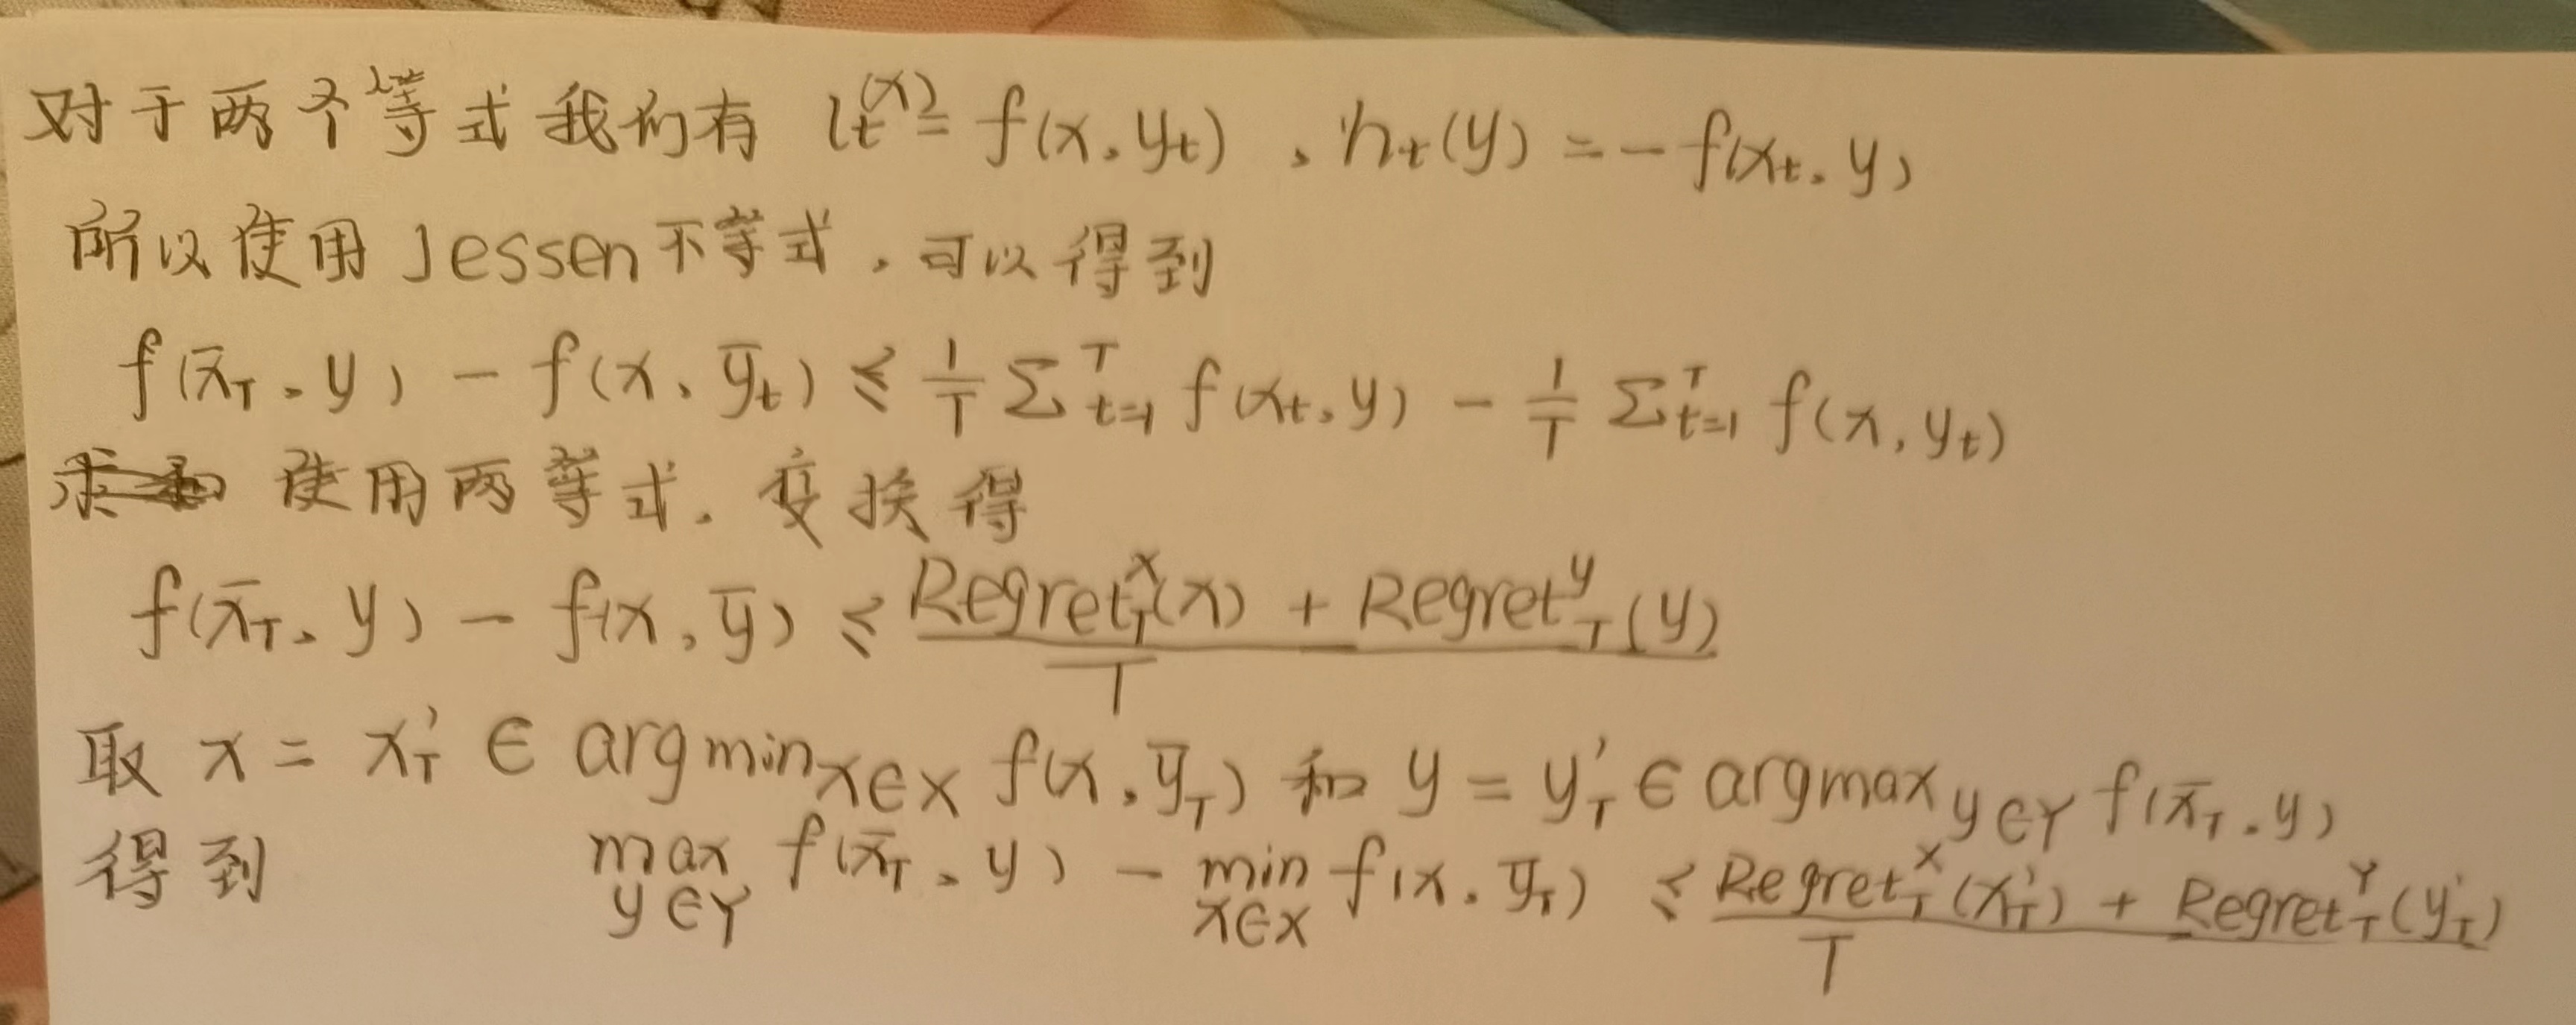 对于两个等式我们有 l_t^(x) = f(x, y_t), h_t(y) = -f(x_t, y)
所以使用 Jessen不等式,可以得到
f(x̄_T, y) - f(x, ȳ_t) ≤ 1/T Σ_{t=1}^T f(x_t, y) - 1/T Σ_{t=1}^T f(x, y_t)
使用两等式,变换得
f(x̄_T, y) - f(x, ȳ) ≤ (Regret_T^x(x) + Regret_T^y(y)) / T
取 x = x'_T ∈ argmin_{x∈X} f(x, ȳ_T) 和 y = y'_T ∈ argmax_{y∈Y} f(x̄_T, y)
得到 max_{y∈Y} f(x̄_T, y) - min_{x∈X} f(x, ȳ_T) ≤ (Regret_T^X(x'_T) + Regret_T^Y(y'_T)) / T